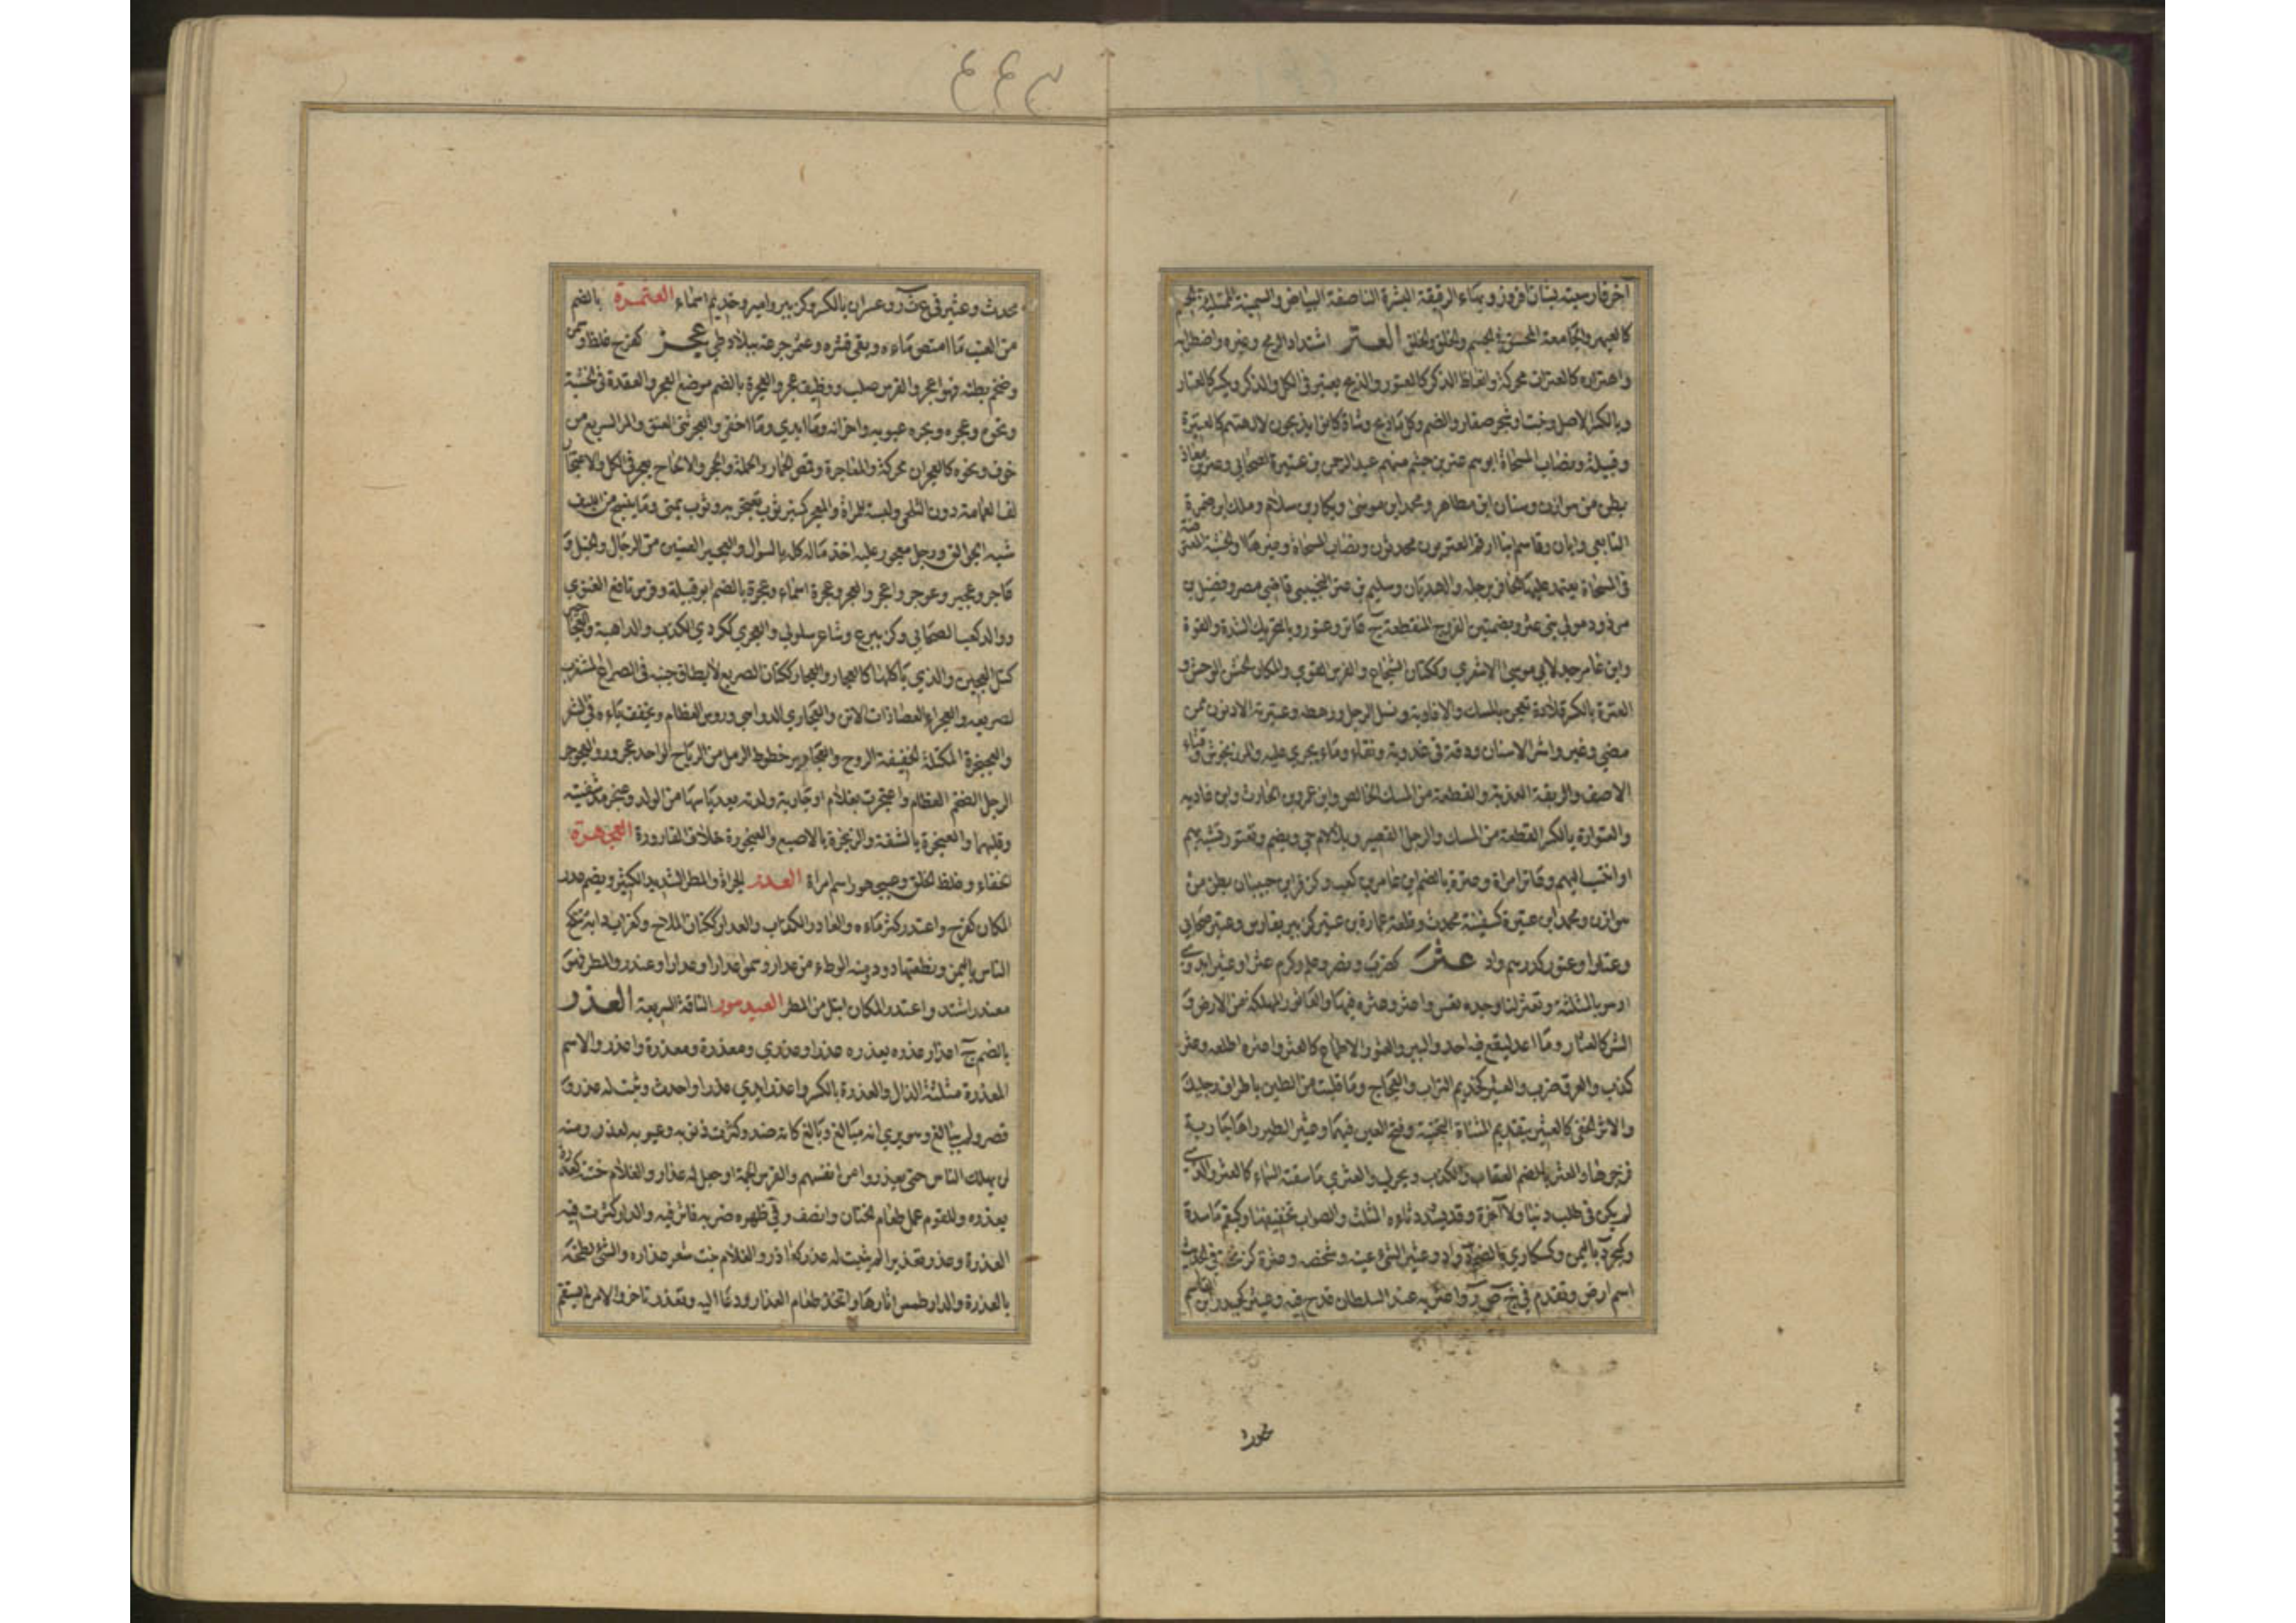 اخر فارسيته بستان افروز وبهاء الرقيقة البشرة الناصعة البياض والسمينة الممتلئة الجسم
كالعبهر والجامعة للحسن في الجسم والخلق والخلق العتر اشتداد الرمح وغيره واضطرابه
واهتزازه كالعتران محركة وانعاظ الذكر كالعتور والذبح يعتر في الكل والذكر ويكسر كالعتار
وبالكسر الاصل ونبت او شجر صغار والصنم وكل ما ذبح وشاة كانوا يذبحون لالهتهم كالعتيرة
وقبيلة ونصاب المسحاة ابوهم عتر بن جشم منهم عبد الرحمن بن عتيرة الصحابي وعتر بن معاذ
بطن من هوازن وسنان ابن مظاهر ومحمد ابن موسى وبكار بن سلام ومالك ابن ضمرة
التابعي وابان وقاسم ابنا ارقم العتريون محدثون ونصاب المسحاة وغيرها والخشبة المعترضة
في المسحاة يعتمد عليها الحافر برجله والهذيان وسليم بن عتر التجيبي قاضي مصر وفضيل بن
مرزوق مولى بني عنز وبضمتين الفروج المنعظة ج عاتر وعتور وبالتحريك الشدة والقوة
وابن عامر جد لابي موسى الاشعري وككتان الشجاع والفرس القوي والمكان الخشن الوحش و
العترة بالكسر قلادة تعجن بالمسك والافاوية ونسل الرجل ورهطه وعشيرته الادنون ممن
مضى وغبر واشر الاسنان ودقة في غروبه ونقاء وماء يجري عليه والمرزنجوش وقثاء
الاصف والريقة العذبة والقطعة من المسك الخالص وابن عمرو بن الحارث وابن غادية
والعتوارة بالكسر القطعة من المسك والرجل القصير وبلا لام حي ويضم وتعتور تشبه بهم
او انتسب اليهم وعاتر امراة وعترة بالضم ابن عامر بن كعب وكزفر ابن حبيبان بطن من
هوازن ومحمد ابن عتيرة كسفينة محدث وقلعة عمارة بن عتير كزبير بفارس وعتير صحابي
وعتار اوعتور كدرهم واد عثر كضرب ونصر وعلم وكرم عثرا وعثيرا
والعاثور المهلكة من الارض و
الشر كالعثار وما اعد ليقع فيه احد والبير والعثور الاطلاع كالعثر واعثره اطلعه وعثر
كذب والعرق ضرب والعثير كحذيم التراب والعجاج وما قلبت من الطين باطراف رجليك
والاثر الخفي كالعيثر بتقديم المثناة التحتية وفتح العين فيهما وعيثر الطير راها جارية
فزجرها والعثر بالضم العقاب والكذب ويحرك والعثري ما سقته السماء كالعثر والذي
لم يكن في طلب دنيا ولا آخرة وقد يشدد ثاؤه المثلث والصواب تخفيفها وكبقم ماسدة
وكجرد باليمن وكسكارى بالضم واد وعيثر الشيء عينه وشخصه وعثرة كزنخة في الحديث
اسم ارض وتقدم في خ ض ر واعثر به عند السلطان قدح فيه وعيثر كحيدر بن القاسم
محدث
ﻣﺤﺪﺙ وعثير في ع ث ر وعثران بالكسر وكزبير وامير وحذيم اسماء العثمرة بالضم
من العنب ما امتص ماءه وبقي قشره وعثمر جرعة ببلاد طي عجر كفرح غلظ وسمن
وضخم بطنه فهو اعجر والفرس صلب ووظيف عجر والعجرة بالضم موضع العجر والعقدة في الخشبة
ونحوه وعجره وبجره عيوبه واحزانه وما ابدى وما اخفى والعجر ثني العنق والمر السريع من
خوف ونحوه كالعجران محركة والمعاجرة وقمص الحمار والحملة والحجر والالحاح يعجر في الكل والاعتجار
لف العمامة دون التلحي ولبسة للمراة والمعجر كمنبر ثوب تعتجر به وثوب يمني وما ينسج من الليف
شبه الجوالق ورجل معجور عليه اخذ ماله كله بالسوال والعجير العنين من الرجال والخيل و
عاجر وعجير وعوجر واعجر والعجر وعجرة اسماء وعجرة بالضم ابو قبيلة وفرس نافع الغنوي
ووالد كعب الصحابي وكزبير ع وشاعر سلولي والعجري ككردي الكذب والداهية والعجاجير
كتل العجين والذي ياكلها كالعجار والعجار ككتان الصريع لا يطاق جنبه في الصراع المشغزب
لصريعه والعجراء العصا ذات الابن والعجاري الدواهي ورؤس العظام ويخفف ياؤه في الشعر
والعجيجرة المكتلة الخفيفة الروح والعجارير خطوط الرمل من الرياح الواحد عجرور والعجوجر
الرجل الضخم العظام واعتجرت بغلام او جارية ولدته بعد ياسها من الولد وعنجر مد شفتيه
وقلبهما والعنجرة بالشفة والزنجرة بالاصبع والعنجورة غلاف القارورة العجهرة
الجفاء وغلظ الخلق وعيجهور اسم امراة العدر الجراة والمطر الشديد الكثير ويضم عدر
المكان كفرح واعتدر كثر ماءه والعادر الكذاب والعدار ككتان الملاح وكغراب دابة تنكح
الناس باليمن ونطفتها دود ومنه الوط من عدار وسموا عدارا وعدارا وعندر المطر فهو
معندر اشتد واعتدر المكان ابتل من المطر العيدهور الناقة السريعة العذر
بالضم ج اعذار عذره يعذره عذرا وعذرى ومعذرة ومعذرة واعذره والاسم
المعذرة مثلثة الذال والعذرة بالكسر واعتذر ابدى عذرا واحدث وثبت له عذر و
قصر ولم يبالغ وهو يرى انه مبالغ وبالغ كانه ضد وكثرت ذنوبه وعيوبه لعذر ومنه
لن يهلك الناس حتى يعذروا من انفسهم والفرس الجمه او جعل له عذارا والغلام ختنه كعذره
يعذره وللقوم عمل طعام الختان وانصف وفي ظهره ضربه فاثر فيه والدار كثرت فيه
العذرة وعذر تعذيرا لم يثبت له عذر كعاذر والغلام نبت شعر عذاره والشيء لطخه
بالعذرة والدار طمس اثارها واتخذ طعام العذار ودعا اليه وتعذر تاخر والامر لم يستقم